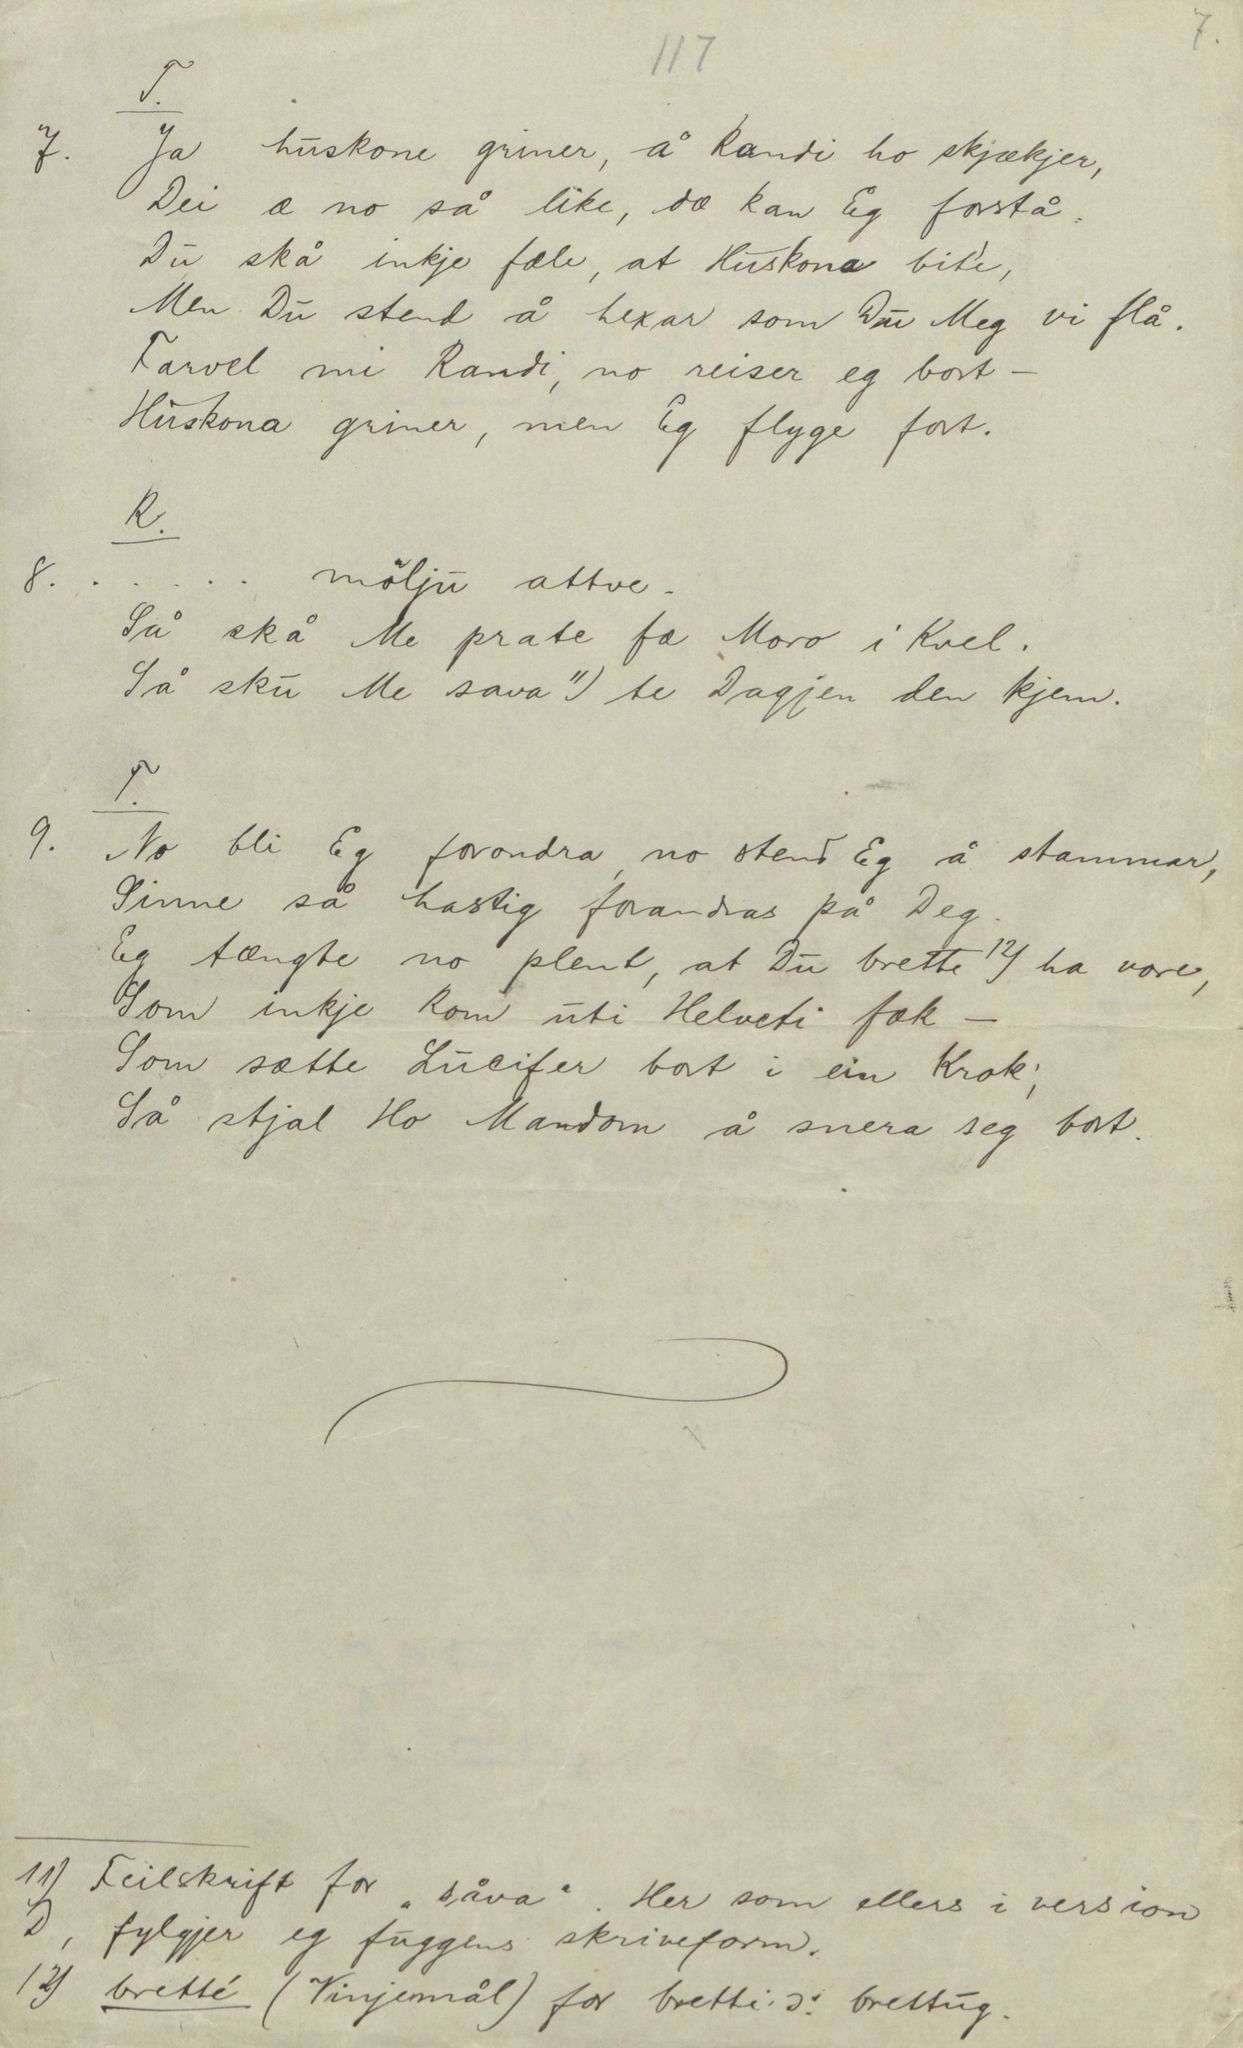 117
7.
T.
7. Ja huskone griner, å Randi ho skjækjer,
Dei æ no så like, dæ kan Eg forstå.
Du skå inkje fæle, at Huskona bite,
Men Du stend å hexar som Du Meg vi flå.
Farvel mi Randi, no reiser eg bort –
Huskona griner, men Eg flyge fort.
R.
8. . . . . . . mölju attve.
Så skå Me prate fæ Moro i Kvel.
Så sku Me sava 11) te Dagjen den kjem.
T.
9. No bli Eg forondra, no stend Eg å stammar,
Sinne så hastig forandras på Deg.
Eg tængte no plent, at Du brette 12) ha vore,
Som inkje kom uti Helveti fæk –
Som sætte Lucifer bort i ein Krok;
Så stjal Ho Mandom å snera seg bort.
11) Feilskrift for „såva“. Her som ellers i version
D, fylgjer eg fuggens skriveform.
12) bretté (Vinjemål) for bretti ɔ: brettug.